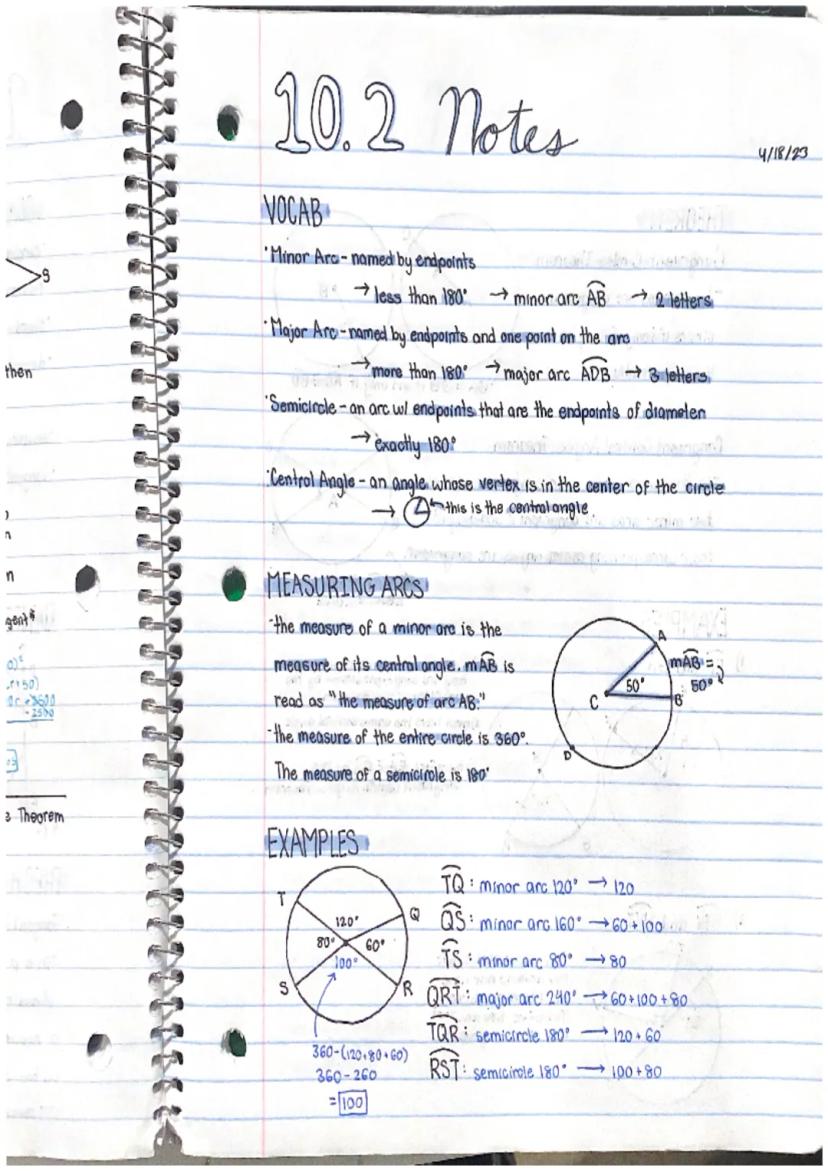 10.2 Notes
4/18/23
VOCAB
·Minor Arc - named by endpoints
→ less than 180° → minor arc AB → 2 letters
·Major Arc - named by endpoints and one point on the arc
→ more than 180° → major arc ADB → 3 letters
·Semicircle - an arc w/ endpoints that are the endpoints of diameter
→ exactly 180°
·Central Angle - an angle whose vertex is in the center of the circle
→ this is the central angle
MEASURING ARCS
-the measure of a minor arc is the
measure of its central angle. mAB is
read as "the measure of arc AB."
-the measure of the entire circle is 360°.
The measure of a semicircle is 180°
A
mAB =
50°
50°
C
B
D
EXAMPLES
T
Q
120°
80°
60°
100°
S
R
360-(120+80+60)
360-260
= 100
TQ : minor arc 120° → 120
QS : minor arc 160° → 60+100
TS : minor arc 80° → 80
QRT : major arc 240° → 60+100+80
TQR : semicircle 180° → 120+60
RST : semicircle 180° → 100+80
S
then
n
Theorem